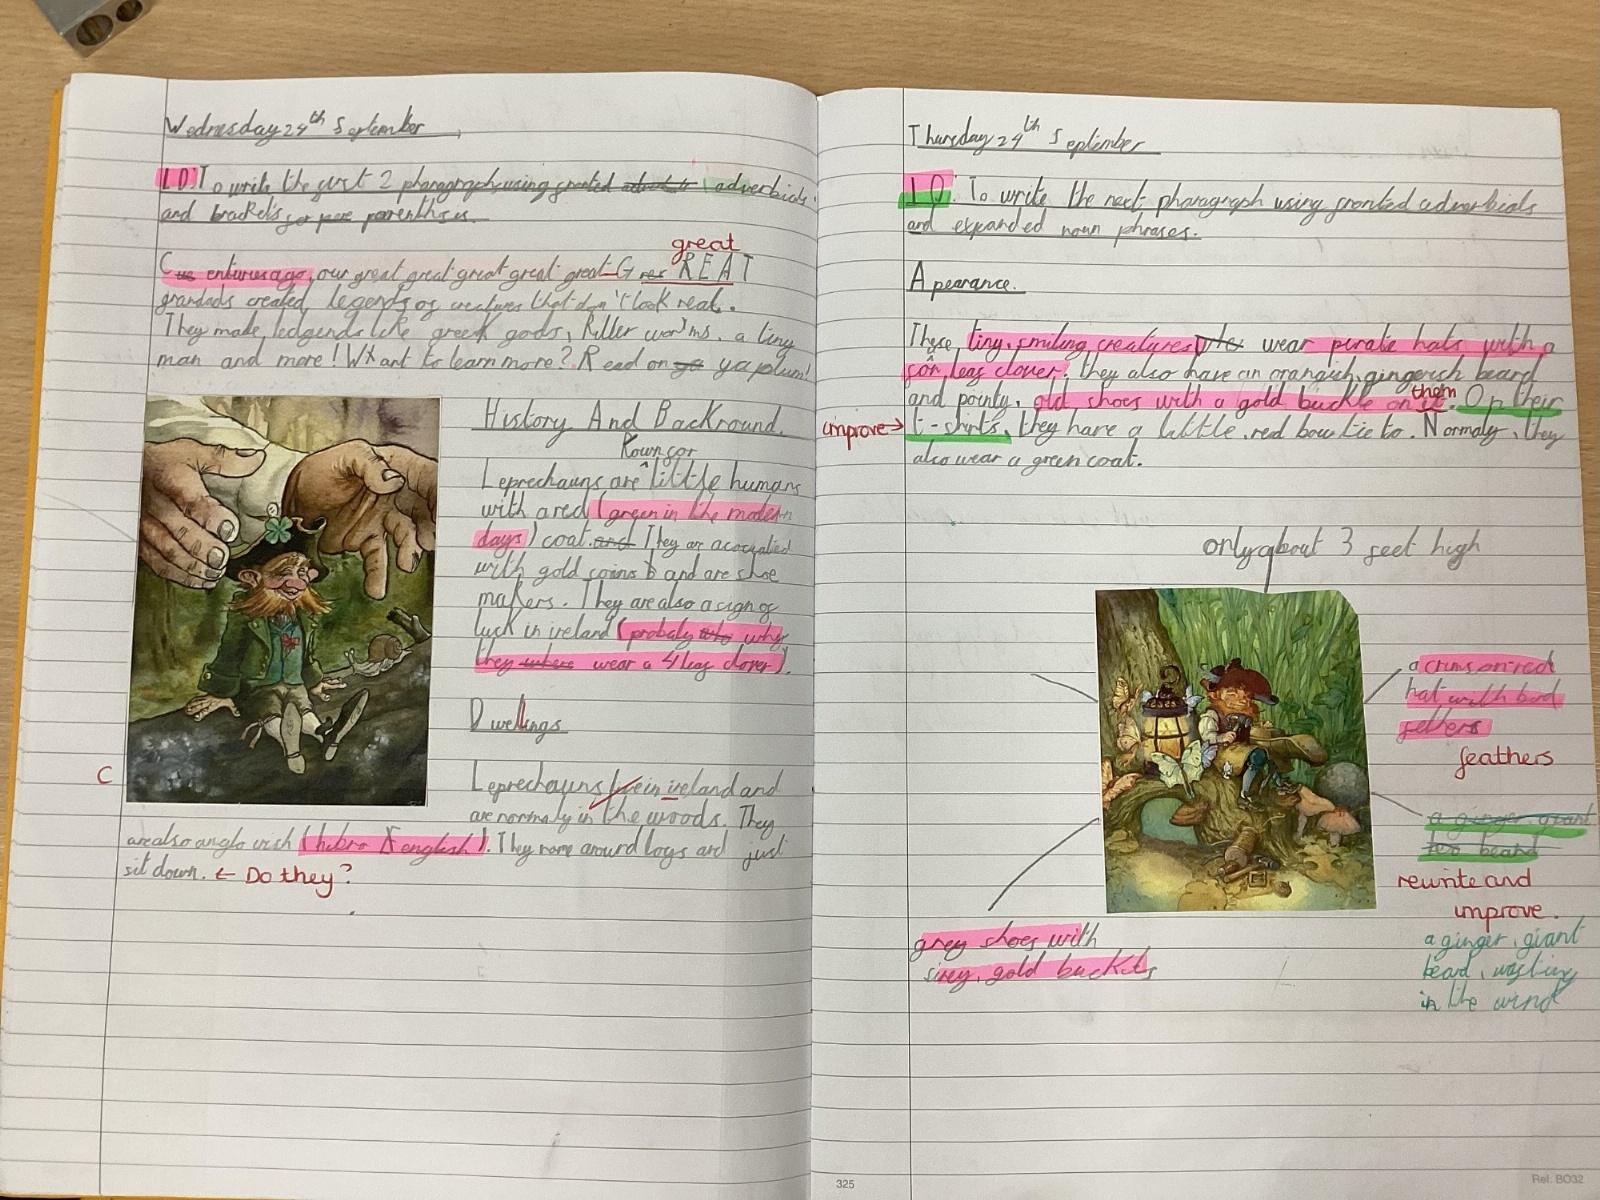 Wednesday 24th September
LO: To write the first 2 pharagraphs using fronted adverbials
and brackets for parenthsis.
great
Centuries ago, our great great great great great G REAT
grandads created legends of creatures that don't look real.
They made ledgends like greek gods, killer worms, a tiny
man and more! Want to learn more? Read on ya plum!
History And Backround.
Kown for
Leprechauns are little humans
with a red (green in the modern
days) coat. and They are
with gold coins and are shoe
makers. They are also a sign of
luck in ireland (probaly why
they where wear a 4 leaf clover).
Dwellings
C
Leprechauns live in ireland and
are normaly in the woods. They
are also anglo irish ( english). They around logs and just
sit down. ← Do they?
Thursday 24th September
LO: To write the next pharagraph using fronted adverbials
and expanded noun phrases.
Apearance.
These tiny, smiling creatures wear pirate hats with a
for leaf clover. they also have an orangish, gingerish beard
them
and pointy, old shoes with a gold buckle on it. On their
improve → t-shirts, they have a little, red bow tie to. Normaly, they
also wear a green coat.
only about 3 feet high
a crimson red
hat with bird
fethers
feathers
a ginger, giant
beard
rewrite and
improve.
a ginger, giant
beard,
in the wind
grey shoes with
gold
325
Ref: BO32